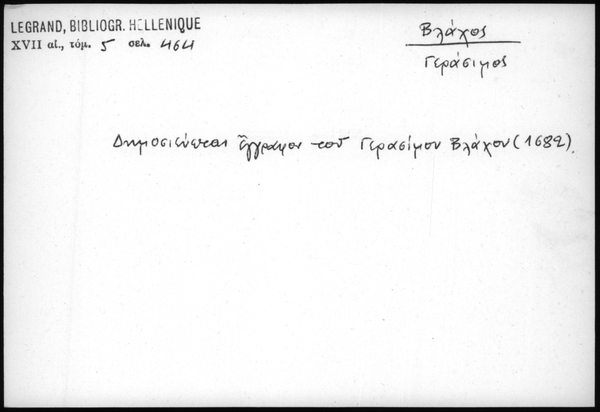 LEGRAND, BIBLIOGR. HELLENIQUE
XVII αἰ., τόμ. 5 σελ. 464
Βλάχος
Γεράσιμος
Δημοσιεύεται ἔγγραφον τοῦ Γερασίμου Βλάχου (1682).